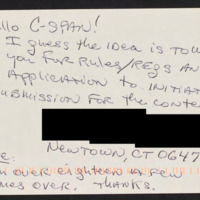 llo C-SPAN!
I guess the idea is to w
you for Rules/Regs an
Application to initiat
ubmission for the conte
Newtown, CT 0647
e:
m over eighteen a few
mes over. Thanks.